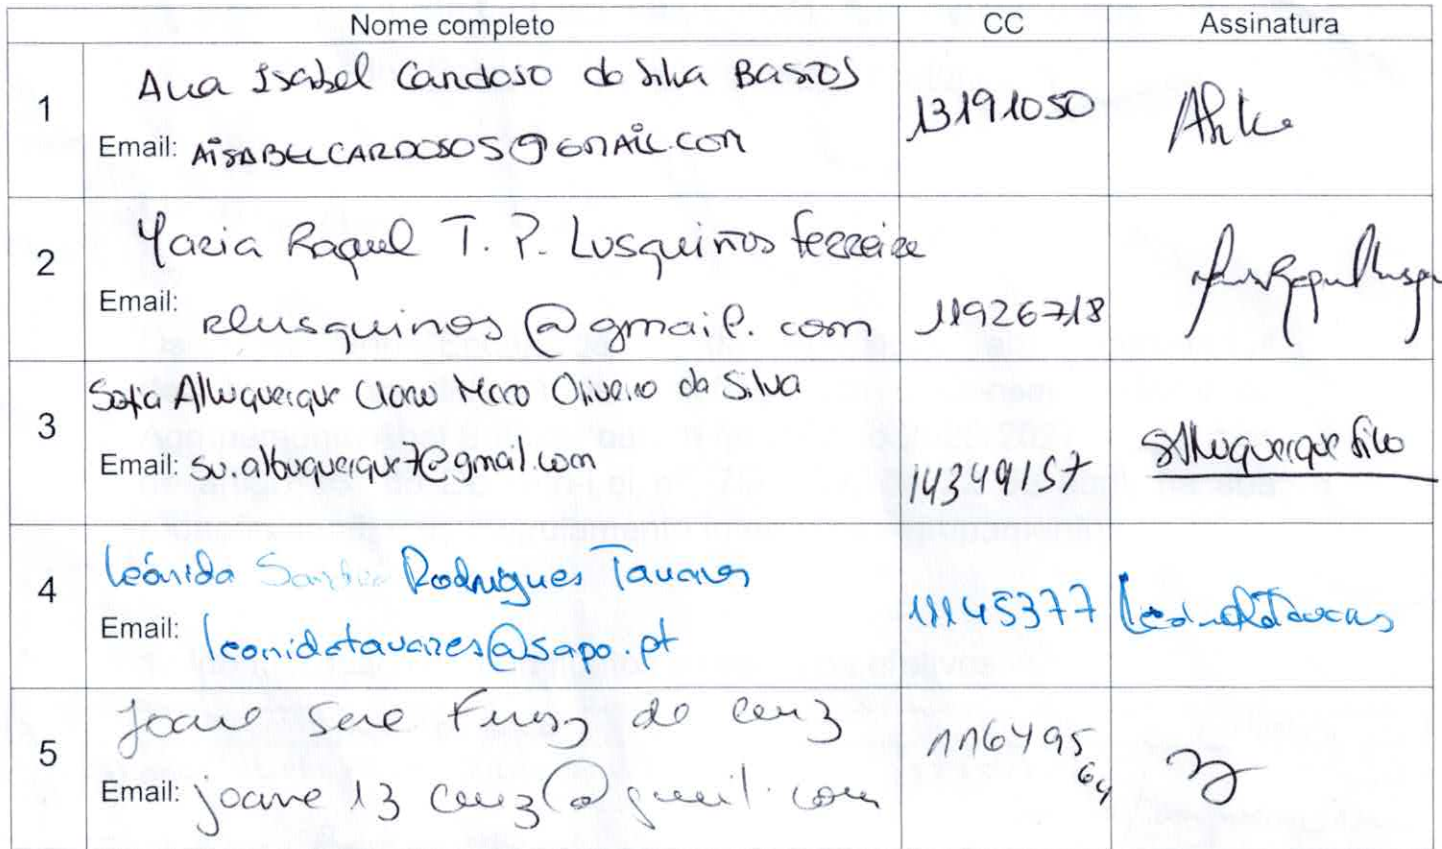 Nome completo CC Assinatura
1 Ana Isabel Cardoso da Silva Bastos
Email: AISABELCARDOSOS@GMAIL.COM 13191050
2 Maria Raquel T. P. Lusquiños Ferreira
Email: rlusquinos@gmail.com 11926718
3 Sofia Albuquerque Claro Moco Oliveira da Silva
Email: su.albuquerque7@gmail.com 14349157 SAlbuquerque Silva
4 Leónida Sandra Rodrigues Tavares
Email: leonidatavares@sapo.pt 11145377
5 Joane de Cruz 11649564
Email: joane13cruz@gmail.com